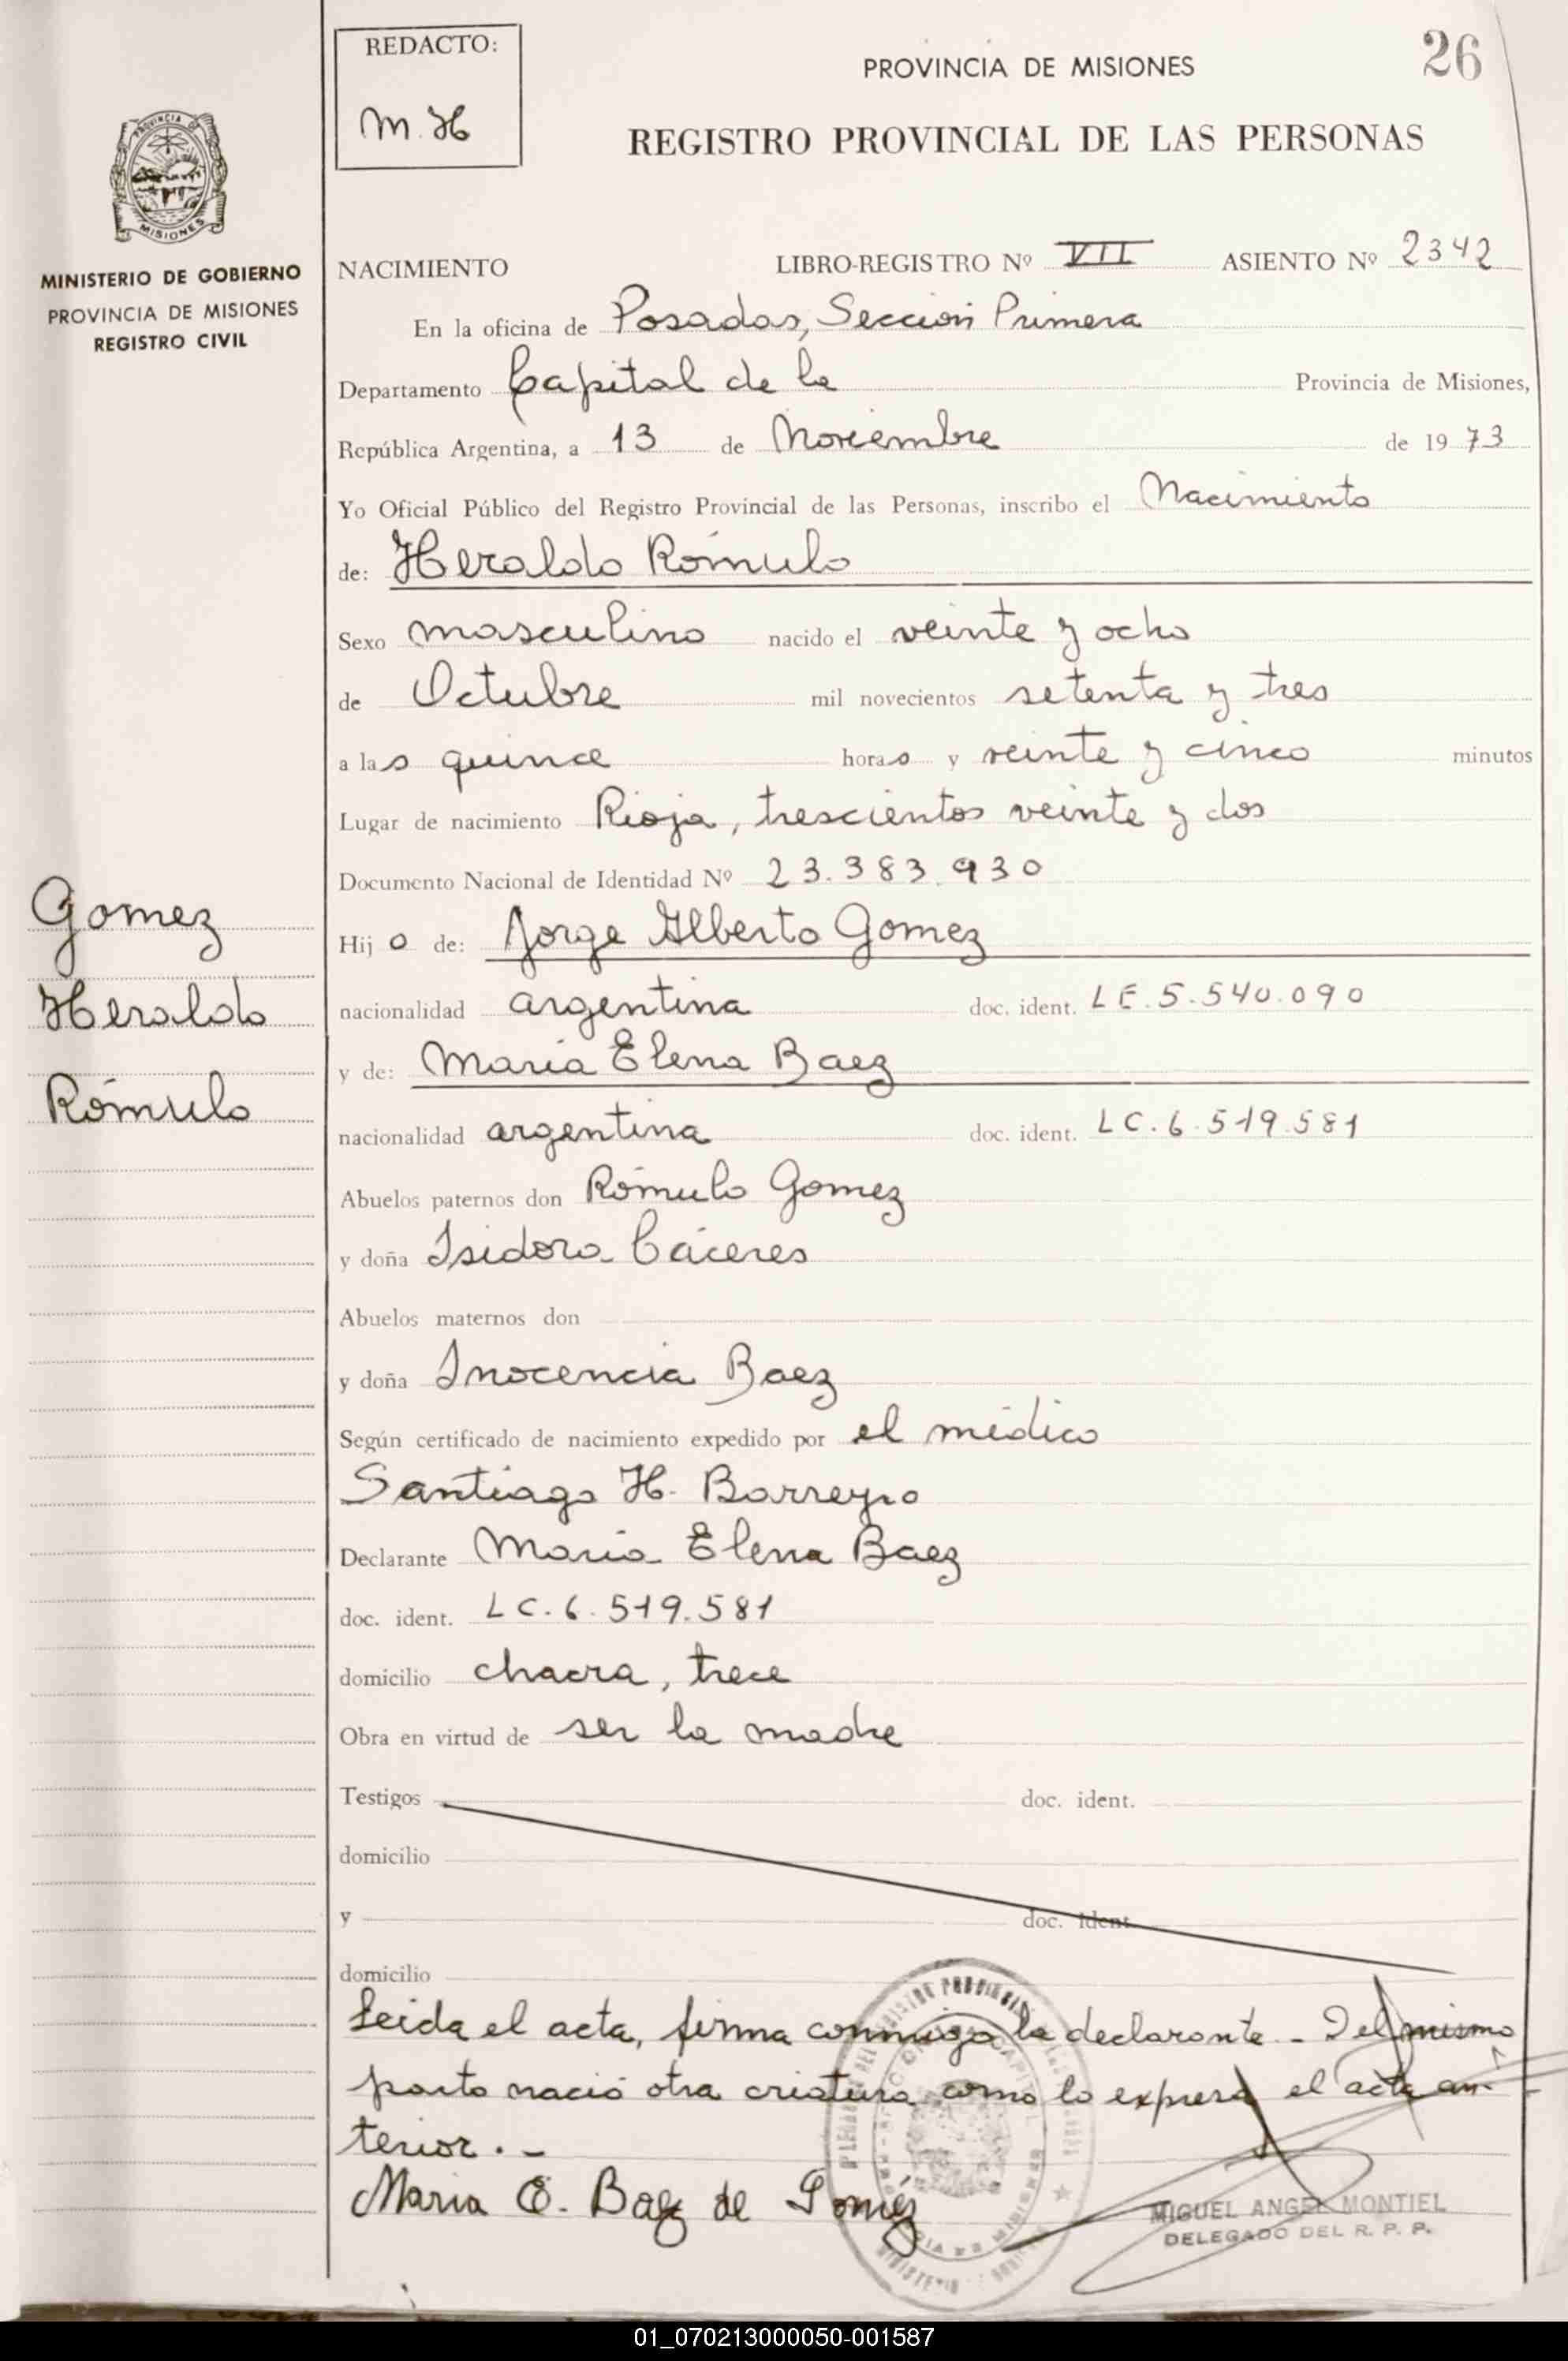 REDACTO:
M.H
PROVINCIA DE MISIONES
26
REGISTRO PROVINCIAL DE LAS PERSONAS
PROVINCIA DE
MISIONES
MINISTERIO DE GOBIERNO
PROVINCIA DE MISIONES
REGISTRO CIVIL
NACIMIENTO LIBRO-REGISTRO Nº VII ASIENTO Nº 2342
En la oficina de Posadas, Sección Primera
Departamento Capital de la Provincia de Misiones,
República Argentina, a 13 de Noviembre de 1973
Yo Oficial Público del Registro Provincial de las Personas, inscribo el Nacimiento
de: Heraldo Rómulo
Sexo masculino nacido el veinte y ocho
de Octubre mil novecientos setenta y tres
a las quince horas y veinte y cinco minutos
Lugar de nacimiento Rioja, trescientos veinte y dos
Documento Nacional de Identidad Nº 23.383.930
Gomez
Heraldo
Rómulo
Hijo de: Jorge Alberto Gomez
nacionalidad argentina doc. ident. LE.5.540.090
y de: María Elena Baez
nacionalidad argentina doc. ident. LC.6.519.581
Abuelos paternos don Rómulo Gomez
y doña Isidora Cáceres
Abuelos maternos don
y doña Inocencia Baez
Según certificado de nacimiento expedido por el médico
Santiago H. Barreyro
Declarante María Elena Baez
doc. ident. LC.6.519.581
domicilio chacra, trece
Obra en virtud de ser la madre
Testigos doc. ident.
domicilio
y doc. ident.
domicilio
Leida el acta, firma conmigo la declarante. - Del mismo
parto nació otra criatura como lo expresa el acta an-
terior. -
Maria E. Baez de Goméz
MIGUEL ANGEL MONTIEL
DELEGADO DEL R. P. P.
01_070213000050-001587